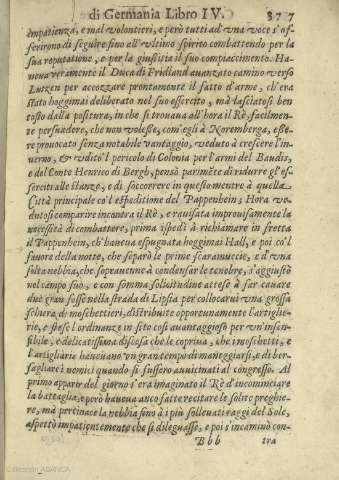 di Germania Libro IV. 377
impatienza, e mal volontieri, e però tutti ad vna voce s'of-
ferirono di seguire fino all'vltimo spirito combattendo per la
sua reputatione, e per la giustitia il suo compiaccimento. Ha-
ueua veramente il Duca di Fridland auanzato camino verso
Lutzen per accozzare prontamente il fatto d'arme, ch'era
stato hoggimai deliberato nel suo essercito, mà lasciatosi ben
tosto dalla positura, in che si trouaua all'hora il Rè, facilmen-
te persuadere, che non volesse, com'egli à Noremberga, esse-
re prouocato senza notabile vantaggio, veduto à crescere l'in-
uerno, & vdito'l pericolo di Colonia per l'armi del Baudis,
e del Conte Henrico di Bergh, pensò parimēte di ridurre gl'es-
serciti alle stanze, e di soccorrere in questo mentre à quella
Città principale co'l espeditione del Pappenheim; Hora ve-
dutosi comparire incontra il Rè, e rauisata improuisamente la
necessità di combattere, prima ispedì à richiamare in fretta
il Pappenhein, ch'haueua espugnata hoggimai Hall, e poi co'l
fauore della notte, che separò le prime scaramuccie, e d'vna
folta nebbia, che soprauenne à condensar le tenebre, s'aggiustò
nel campo suo, e con somma solicitudine attese à far cauare
due gran fosse nella strada di Lipsia per collocarui vna grossa
schiera di moschettieri, distribuite opportunamente l'artiglie-
rie, e stese l'ordinanze in sito così auantaggioso per vn'insen-
sibile, e delicatissima discesa che le copriua, che i moschetti, e
l'artigliarie haueuano vn gran tempo di maneggiarsi, e di ber-
sagliare i nemici quando si fussero auuicinati al congresso. Al
primo apparir del giorno s'era imaginato il Rè d'incominciare
la battaglia, e però haueua anco fatte recitare le solite preghie-
re, mà pertinace la nebbia fino à i più solleuati raggi del Sole,
aspettò impatientemente che si dileguasse, e poi s'incaminò con-
Bbb tra
Colección ABANCA